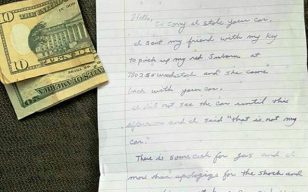 10
10
Hello,
So sorry I stole your car.
I sent my friend with my key
to pick up my red Subaru at
and she came
back with your car.
I did not see the car until this
afternoon and I said "that is not my
car."
There is some cash for gas and I
more than apologize for the shock and